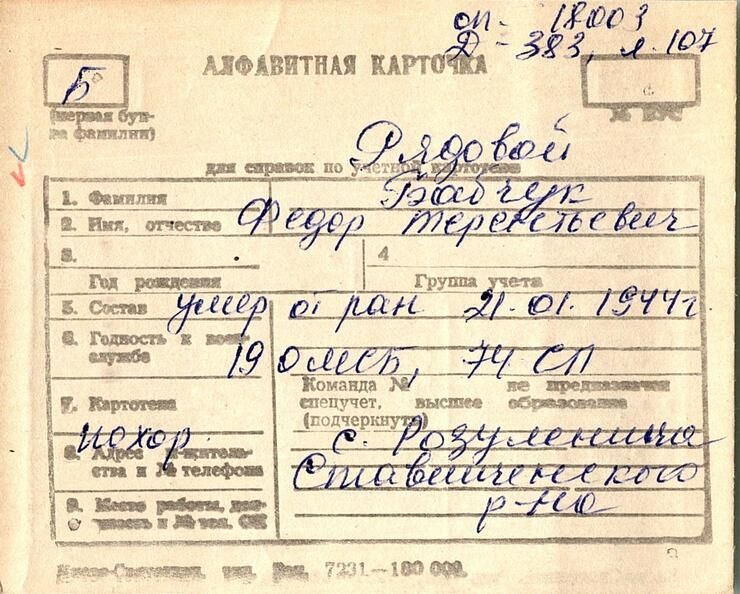 оп- 18003
Д - 383, л. 107
АЛФАВИТНАЯ КАРТОЧКА
Б
(первая бук-
ва фамилии)
№ ВУС
Рядовой
для справок по учетной картотеке
1. Фамилия Бабчук
2. Имя, отчество Федор Терентьевич
3.
4
Год рождения
Группа учета
5. Состав умер от ран 21.01.1944г
6. Годность к воен-
службе
19 ОМСБ, 74 СП
Команда № не предназначен
7. Картотека
спецучет, высшее образование
(подчеркнуть)
похор.
с. Розуленича
8. Адрес житель-
ства и № телефона
Ставищенского
9. Место работы, дол-
жность и № тел. ОК
р-на
тип. Зак. 7231—100 000.